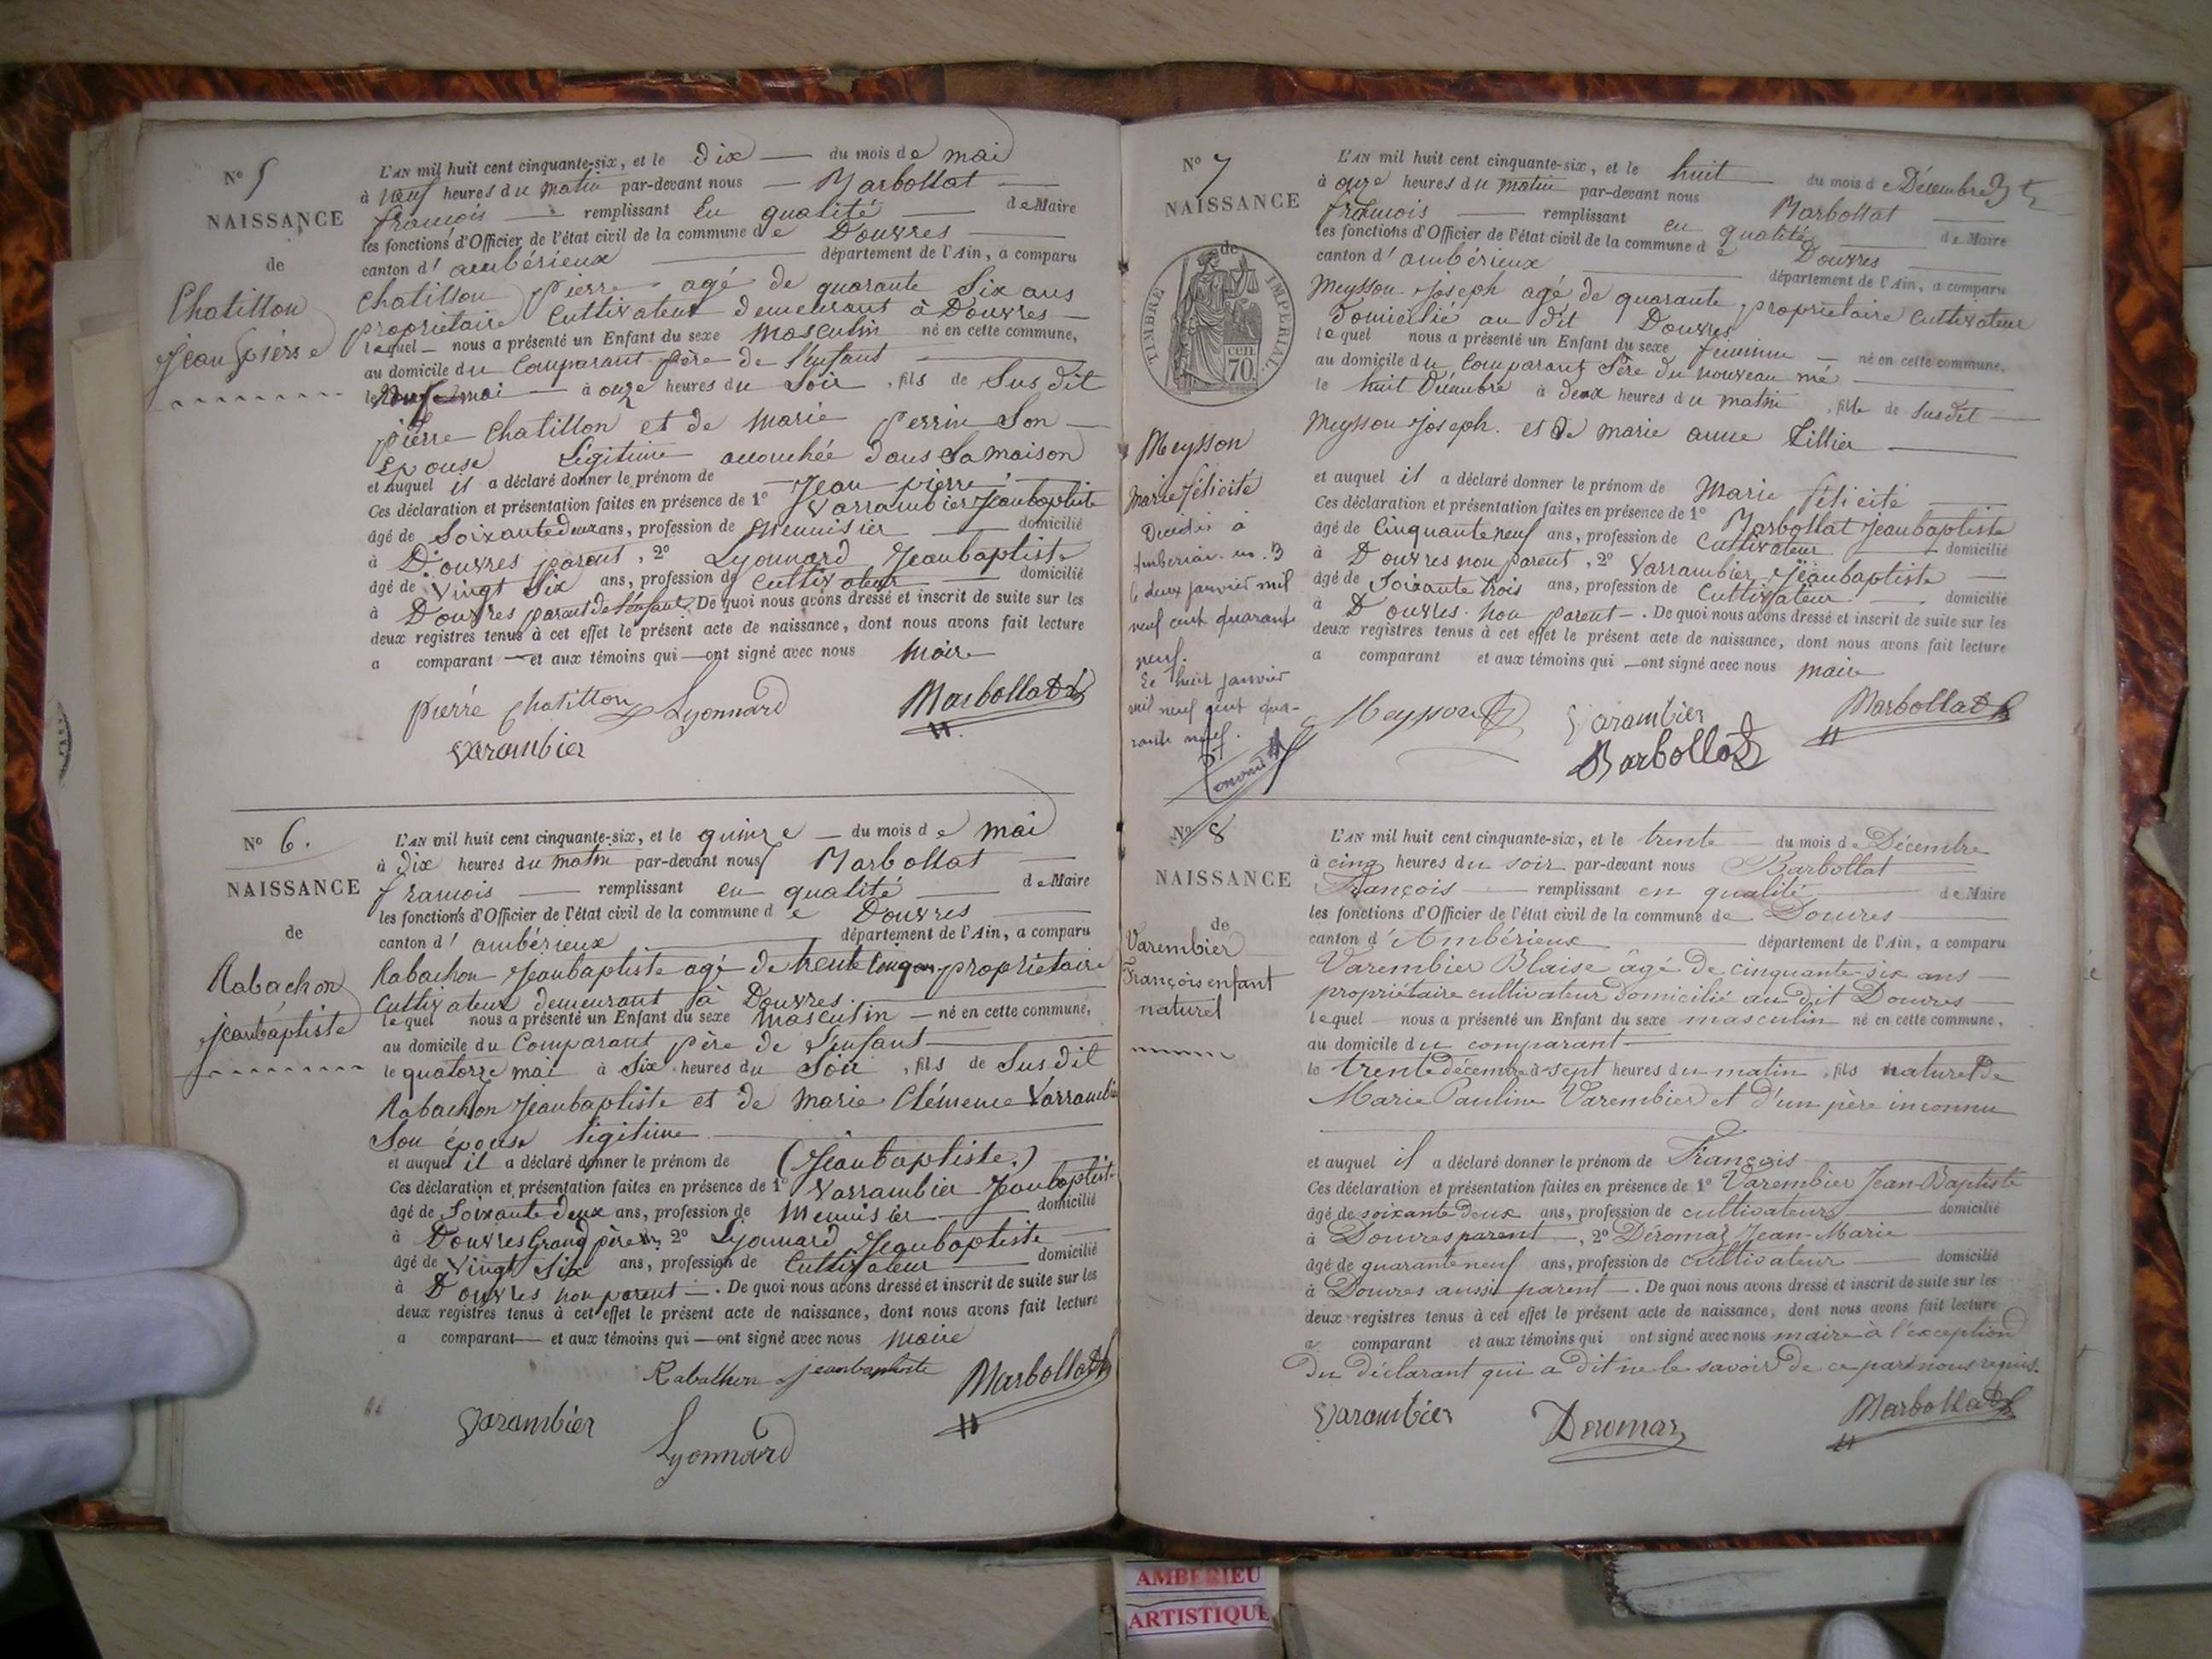 N° 5
NAISSANCE
de
Chatillon
Jean pierre
L'AN mil huit cent cinquante-six, et le dix du mois de mai
à neuf heures du matin par-devant nous Marbollat
françois remplissant en qualité de Maire
les fonctions d'Officier de l'état civil de la commune de Douvres
canton d'ambérieux département de l'Ain, a comparu
Chatillon Pierre agé de quarante Six ans
propriétaire Cultivateur demeurant à Douvres
lequel nous a présenté un Enfant du sexe Masculin né en cette commune,
au domicile du Comparant père de l'enfant
le neuf mai à onze heures du Soir, fils de Susdit
pierre Chatillon et de Marie Perrin Son
Epouse Légitime accouchée dans Sa maison
et auquel il a déclaré donner le prénom de Jean pierre
Ces déclaration et présentation faites en présence de 1° Varrambier Jeanbaptiste
âgé de Soixante deux ans, profession de Menuisier domicilié
à Douvres parent, 2° Lyonnard Jeanbaptiste
âgé de Vingt Six ans, profession de Cultivateur domicilié
à Douvres parent de l'enfant. De quoi nous avons dressé et inscrit de suite sur les
deux registres tenus à cet effet le présent acte de naissance, dont nous avons fait lecture
a comparant et aux témoins qui ont signé avec nous Maire
pierre Chatillon Lyonnard Marbollat
Varambier
N° 6.
NAISSANCE
de
Rabachon
jeanbaptiste
L'AN mil huit cent cinquante-six, et le quinze du mois de mai
à dix heures du matin par-devant nous Marbollat
françois remplissant en qualité de Maire
les fonctions d'Officier de l'état civil de la commune de Douvres
canton d'ambérieux département de l'Ain, a comparu
Rabachon Jeanbaptiste agé de trente Cinq ans propriétaire
Cultivateur demeurant à Douvres
lequel nous a présenté un Enfant du sexe Masculin né en cette commune,
au domicile du Comparant père de l'enfant
le quatorze mai à Six heures du Soir, fils de Susdit
Rabachon Jeanbaptiste et de Marie Clémence Varrambier
Son épouse légitime
et auquel il a déclaré donner le prénom de (Jeanbaptiste.)
Ces déclaration et présentation faites en présence de 1° Varrambier Jeanbaptiste
âgé de Soixante deux ans, profession de Menuisier domicilié
à Douvres Grand père 2° Lyonnard Jeanbaptiste
âgé de Vingt Six ans, profession de Cultivateur domicilié
à Douvres non parent. De quoi nous avons dressé et inscrit de suite sur les
deux registres tenus à cet effet le présent acte de naissance, dont nous avons fait lecture
a comparant et aux témoins qui ont signé avec nous maire
Rabachon jeanbaptiste Marbollat
Varambier
Lyonnard
N° 7
NAISSANCE
de
TIMBRE IMPERIAL
cen
70.
Meysson
Marie félicité
Décédée à
Ambérieu
le deux janvier mil
neuf cent quarante
neuf.
Le huit janvier
mil neuf cent qua-
rante neuf.
L'AN mil huit cent cinquante-six, et le huit du mois de Décembre
à onze heures du matin par-devant nous Marbollat
françois remplissant en qualité de Maire
les fonctions d'Officier de l'état civil de la commune de Douvres
canton d'ambérieux département de l'Ain, a comparu
Meysson Joseph agé de quarante, propriétaire Cultivateur
Domicilié au dit Douvres
lequel nous a présenté un Enfant du sexe féminin né en cette commune,
au domicile du Comparant Père du nouveau né
le huit Décembre à deux heures du matin, fille de Susdit
Meysson Joseph. et de marie anne Tillier
et auquel il a déclaré donner le prénom de Marie félicité
Ces déclaration et présentation faites en présence de 1° Marbollat Jeanbaptiste
âgé de Cinquante neuf ans, profession de Cultivateur domicilié
à Douvres non parent, 2° Varrambier Jeanbaptiste
âgé de Soixante trois ans, profession de Cultivateur domicilié
à Douvres. non parent. De quoi nous avons dressé et inscrit de suite sur les
deux registres tenus à cet effet le présent acte de naissance, dont nous avons fait lecture
a comparant et aux témoins qui ont signé avec nous maire
Meysson Varambier Marbollat
Barbollat
N° 8
NAISSANCE
de
Varembier
François enfant
naturel
L'AN mil huit cent cinquante-six, et le trente du mois de Décembre
à cinq heures du soir par-devant nous Barbollat
François remplissant en qualité de Maire
les fonctions d'Officier de l'état civil de la commune de Douvres
canton d'Ambérieux département de l'Ain, a comparu
Varembier Blaise âgé de cinquante-six ans
propriétaire cultivateur domicilié au dit Douvres
lequel nous a présenté un Enfant du sexe masculin né en cette commune,
au domicile du comparant
le trente décembre à sept heures du matin, fils naturel de
Marie Pauline Varembier et d'un père inconnu
et auquel il a déclaré donner le prénom de François
Ces déclaration et présentation faites en présence de 1° Varembier Jean-Baptiste
âgé de soixante deux ans, profession de cultivateur domicilié
à Douvres parent, 2° Déromas Jean-Marie
âgé de quarante neuf ans, profession de cultivateur domicilié
à Douvres aussi parent. De quoi nous avons dressé et inscrit de suite sur les
deux registres tenus à cet effet le présent acte de naissance, dont nous avons fait lecture
a comparant et aux témoins qui ont signé avec nous maire à l'exception
du déclarant qui a dit ne le savoir de ce par nous requis.
Varambier Deromas Marbollat
AMBERIEU
ARTISTIQUE